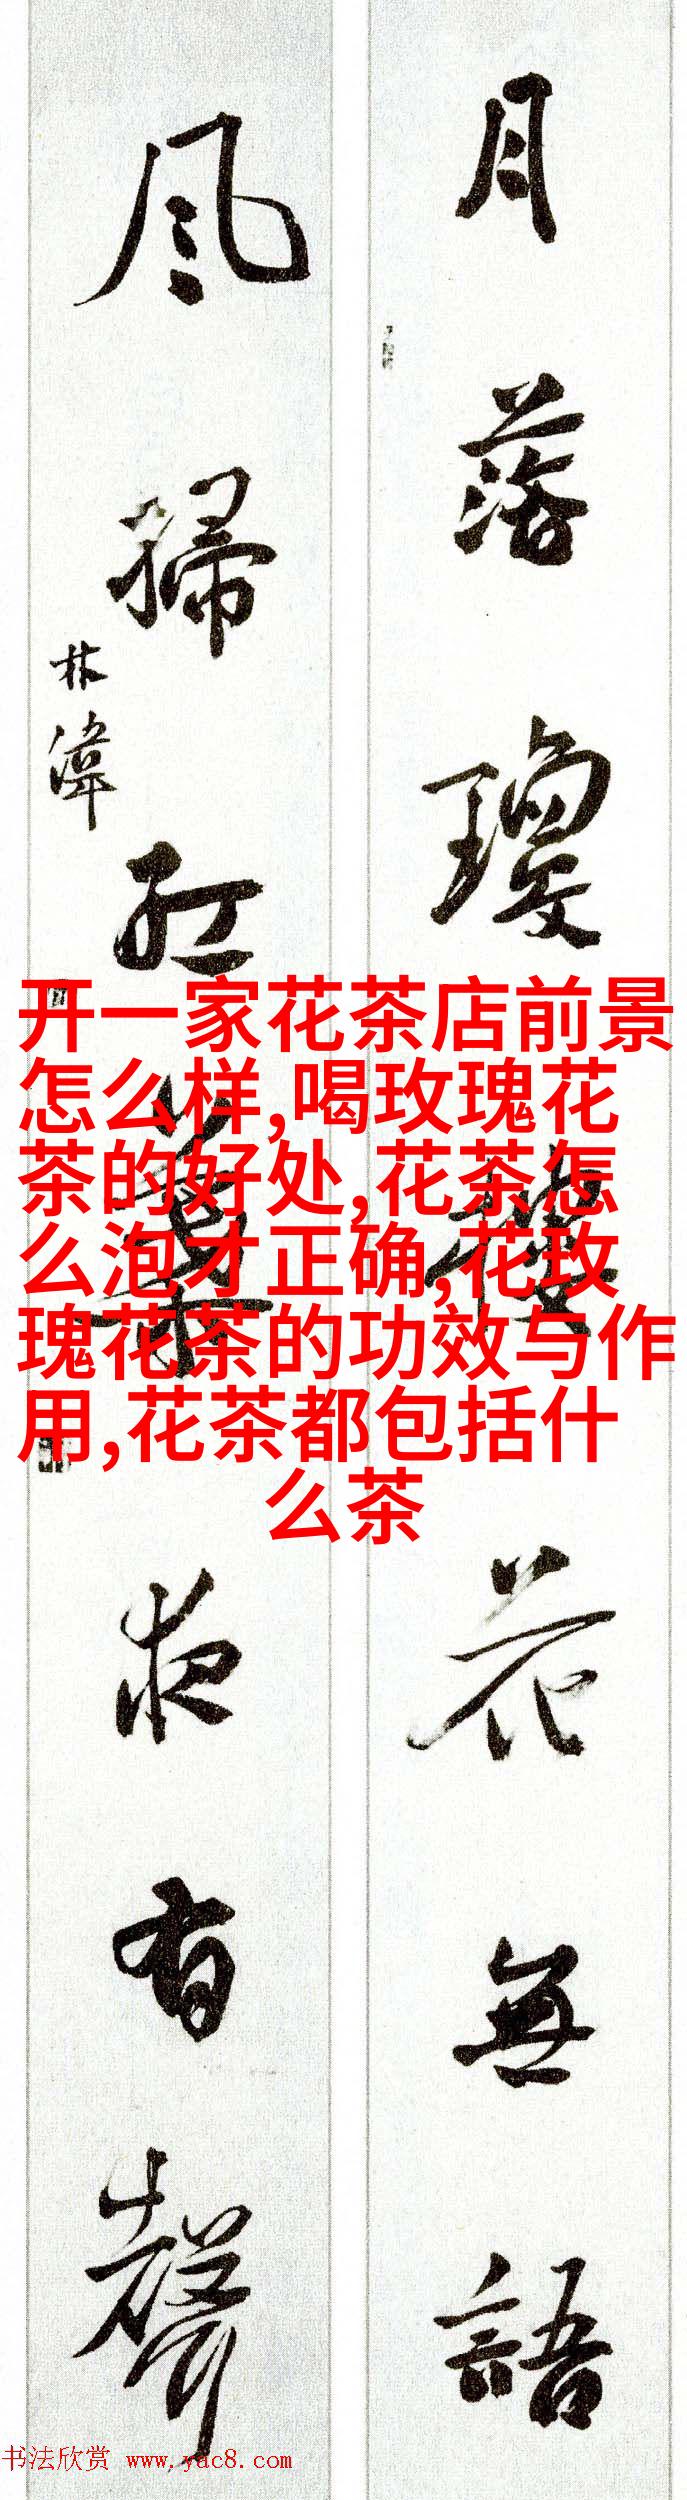 月落瓊花無語
風掃紅夜有聲
林
开一家花茶店前景
怎么样,喝玫瑰花
茶的好处,花茶怎
么泡才正确,花玫
瑰花茶的功效与作
用,花茶都包括什
么茶
书法欣赏 www.yac8.com